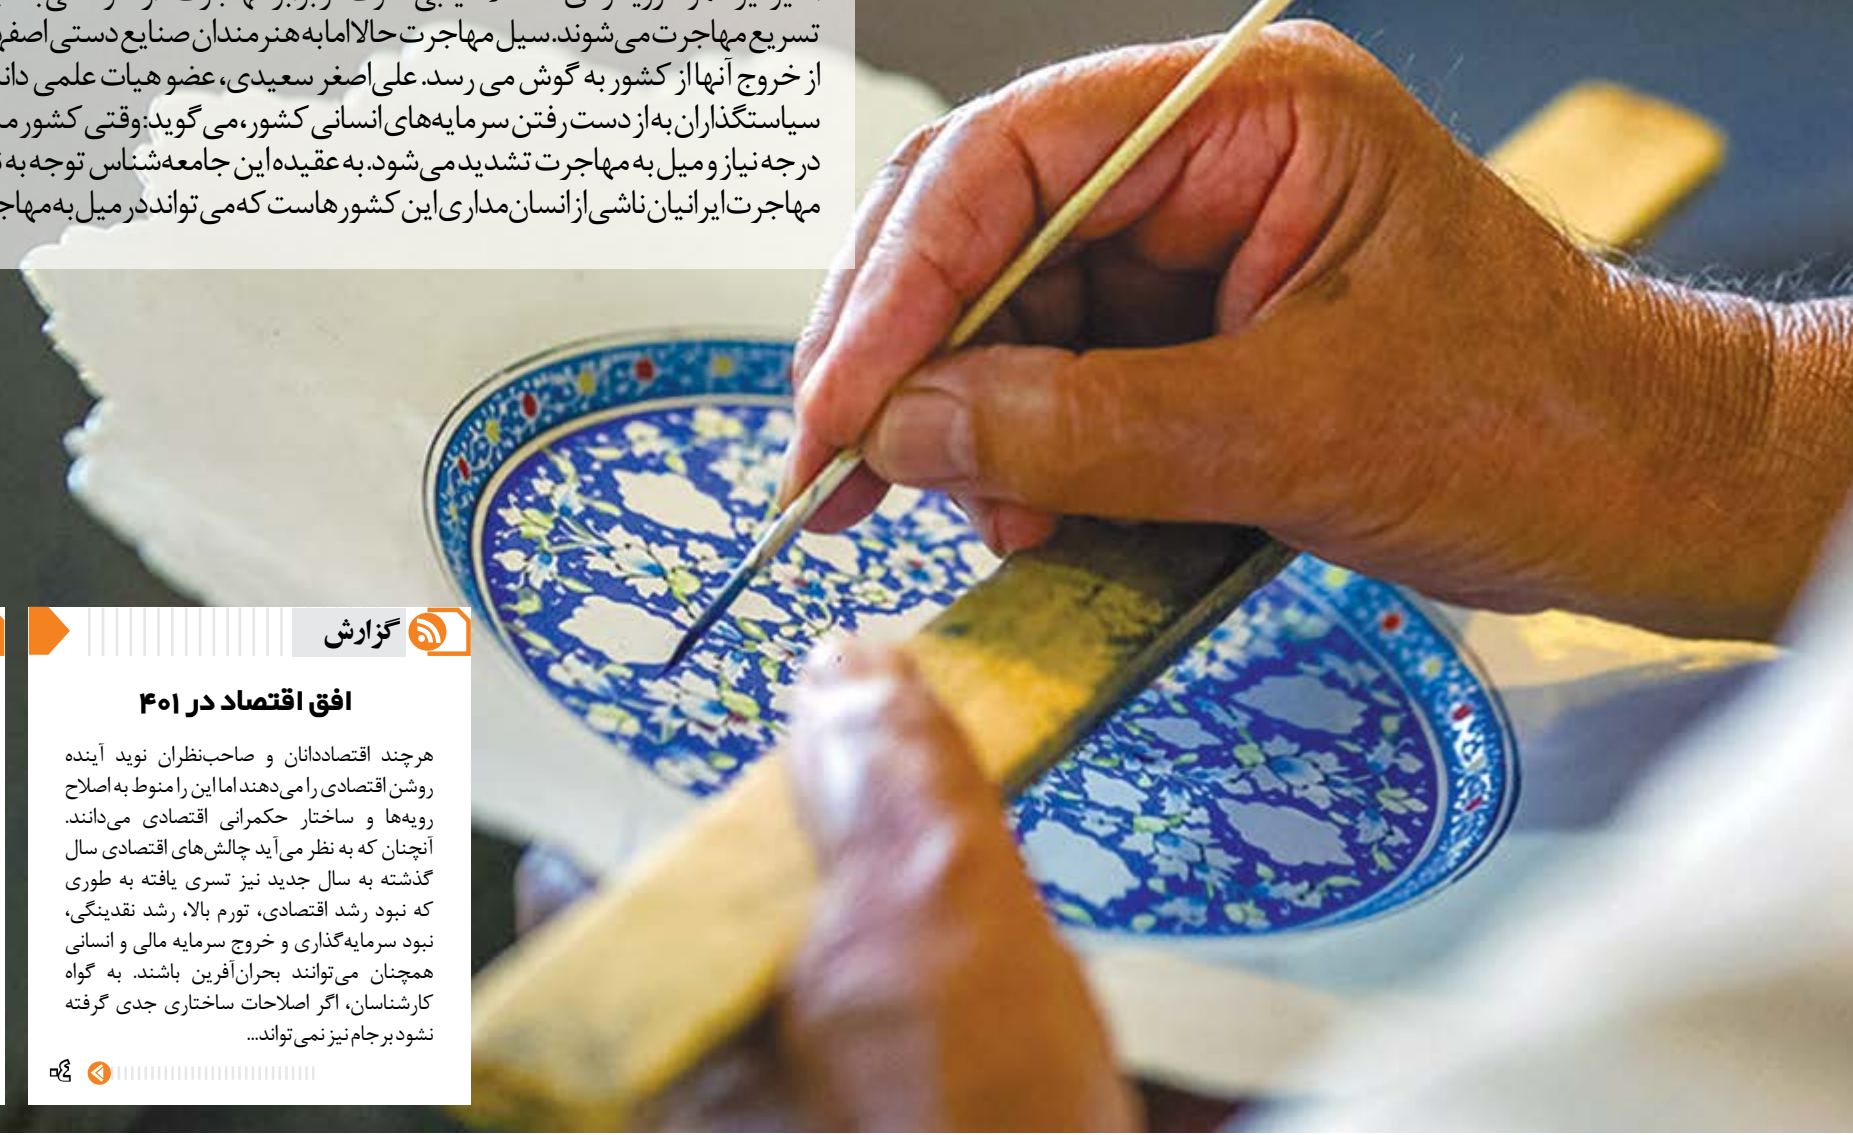 تسریع مهاجرت می‌شوند. سیل مهاجرت حالا اما به هنرمندان صنایع دستی
از خروج آنها از کشور به گوش می رسد. علی‌اصغر سعیدی، عضو هیات علمی
سیاستگذاران به از دست رفتن سرمایه‌های انسانی کشور، می گوید: وقتی کشور
درجه نیاز و میل به مهاجرت تشدید می‌شود. به عقیده این جامعه‌شناس توجه به
مهاجرت ایرانیان ناشی از انسان‌مداری این کشورهاست که می تواند در میل به
گزارش
افق اقتصاد در ۴۰۱
هرچند اقتصاددانان و صاحب‌نظران نوید آینده
روشن اقتصادی را می‌دهند اما این را منوط به اصلاح
رویه‌ها و ساختار حکمرانی اقتصادی می‌دانند.
آنچنان که به نظر می‌آید چالش‌های اقتصادی سال
گذشته به سال جدید نیز تسری یافته به طوری
که نبود رشد اقتصادی، تورم بالا، رشد نقدینگی،
نبود سرمایه‌گذاری و خروج سرمایه مالی و انسانی
همچنان می‌توانند بحران‌آفرین باشند. به گواه
کارشناسان، اگر اصلاحات ساختاری جدی گرفته
نشود برجام نیز نمی‌تواند...
۰۴